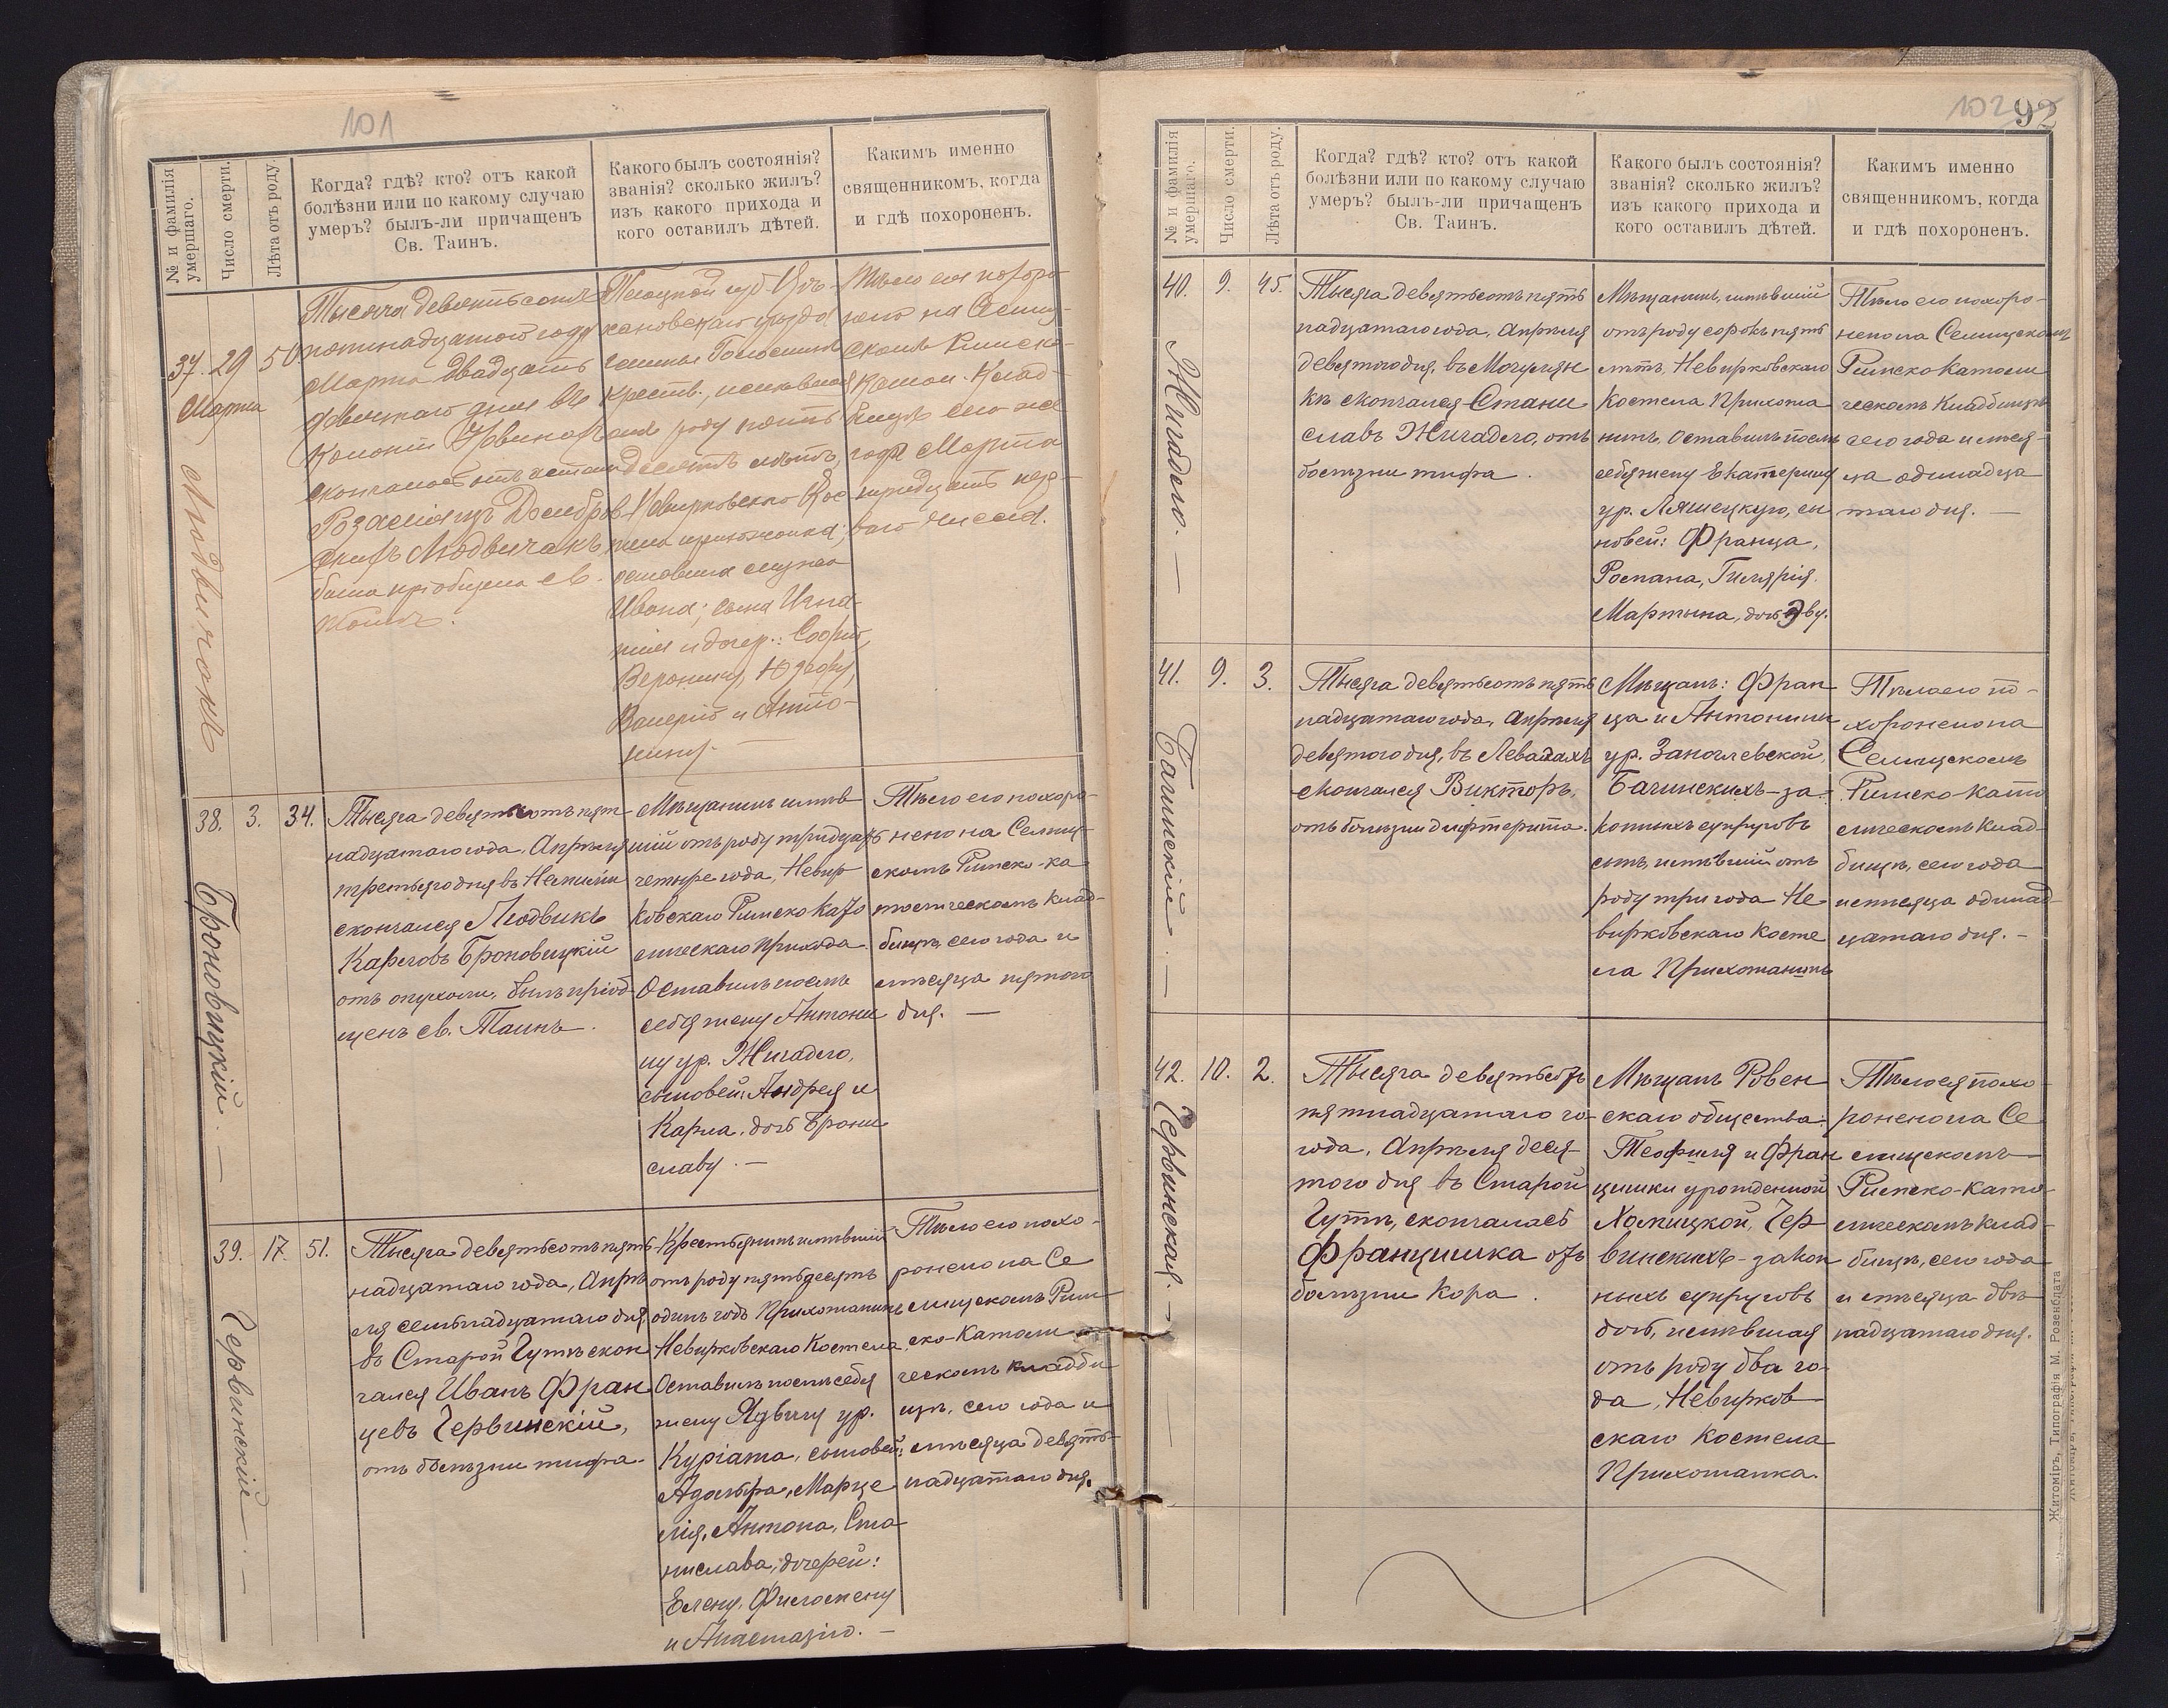 101
№ и фамилія умершаго.
Число смерти.
Лѣта отъ роду.
Когда? гдѣ? кто? отъ какой
болѣзни или по какому случаю
умеръ? былъ-ли причащенъ
Св. Таинъ.
Какого былъ состоянія?
званія? сколько жилъ?
изъ какого прихода и
кого оставилъ дѣтей.
Какимъ именно
священникомъ, когда
и гдѣ похороненъ.
37.
Марта
29
50
Тысяча девятьсотъ
пятнадцатого года
Марта двадцать
девятаго дня въ
Колоніи
скончалась отъ
Людвичакъ,
была пріобщена св.
Плоцкой губ.
уѣзда
гмины
крест., имѣвшая
отъ роду пять
десятъ лѣтъ,
Невирковскаго Кос
тела прихожанка;
оставила мужа
Ивана; сына Игна-
тія и дочер.: Софію,
Веронику, Юзефу,
Валерію и Анто-
нину. —
Тѣло ея похоро-
нено на Селищ-
скомъ Римско-
Катол. Клад-
бищѣ сего же
года Марта
тридцать пер-
ваго числа.
38.
Броновицкій. —
3.
34.
Тысяча девятьсотъ пят-
надцатаго года, Апрѣля
третьяго дня въ
скончался Людвикъ
Карловъ Броновицкій
отъ опухоли, былъ пріоб-
щенъ св. Таинъ.
Мѣщанинъ имѣв
шій отъ роду тридцать
четыре года, Невир
ковскаго Римско Като
лическаго Прихода.
Оставилъ послѣ
себя жену Антони
ну ур. Жигадло,
сыновей: Андрея и
Карла, дочь Брони
славу. —
Тѣло его похоро-
нено на Селищ-
скомъ Римско-ка
толическомъ клад-
бищѣ, сего года и
мѣсяца пятого
дня. —
39.
Червинскій. —
17.
51.
Тысяча девятьсотъ пять
надцатаго года, Апрѣ
ля семьнадцатаго дня,
въ Старой Гутѣ скон
чался Иванъ Фран
цевъ Червинскій,
отъ болѣзни тифа.
Крестьянинъ имѣвшій
отъ роду пятьдесятъ
одинъ годъ Прихожанинъ
Невирковскаго Костела,
Оставилъ послѣ себя
жену Ядвигу ур.
Куріата, сыновей:
Адольфа, Марце
лія, Антона, Ста
нислава, дочерей:
Елену, Филомену
и Анастазію. —
Тѣло его похо-
ронено на Се
лищскомъ Рим
ско-Католи
ческомъ кладби
щѣ, сего года и
мѣсяца девять-
надцатаго дня.
102
92
№ и фамилія умершаго.
Число смерти.
Лѣта отъ роду.
Когда? гдѣ? кто? отъ какой
болѣзни или по какому случаю
умеръ? былъ-ли причащенъ
Св. Таинъ.
Какого былъ состоянія?
званія? сколько жилъ?
изъ какого прихода и
кого оставилъ дѣтей.
Какимъ именно
священникомъ, когда
и гдѣ похороненъ.
40.
Жигадло. —
9.
45.
Тысяча девятьсотъ пять
надцатаго года, Апрѣля
девятого дня, въ Могилян
кѣ скончался Стани
славъ Жигадло, отъ
болѣзни тифа.
Мѣщанинъ, имѣвшій
отъ роду сорокъ пять
лѣтъ, Невирковскаго
Костела Прихожа
нинъ, Оставилъ послѣ
себя жену Екатерину
ур. Ляшецкую, сы
новей: Франца,
Романа, Гилярія,
Мартына, дочь Эву.
Тѣло его похоро-
нено на Селищскомъ
Римско Католи
ческомъ Кладбищѣ
сего года и мѣся-
ца одинадца
таго дня. —
41.
Бачинскій. —
9.
3.
Тысяча девятьсотъ пять
надцатаго года, Апрѣля
девятого дня, въ Левадахъ
скончался Викторъ,
отъ болѣзни дифтерита.
Мѣщанъ: Фран
ца и Антонины
ур. Заночлевской,
Бачинскихъ-за-
конныхъ супруговъ
сынъ, имѣвшій отъ
роду три года Не
вирковскаго Косте
ла Прихожанинъ
Тѣло его по-
хоронено на
Селищскомъ
Римско-като
лическомъ Клад-
бищѣ, сего года
и мѣсяца одинад-
цатаго дня. —
42.
Червинская. —
10.
2.
Тысяча девятьсотъ
пятнадцатаго го-
года, Апрѣля деся-
того дня въ Старой
Гутѣ, скончалась
Францишка отъ
болѣзни Кора.
Мѣщанъ Ровен
скаго общества:
Теофиля и Фран
цишки урожденной
Хомицкой, Чер
винскихъ-закон
ныхъ супруговъ
дочь, имѣвшая
отъ роду два го-
да, Невирков
скаго Костела
Прихожанка.
Тѣло ея похо-
ронено на Се
лищскомъ
Римско-Като-
лическомъ клад-
бищѣ, сего года
и мѣсяца двѣ
надцатаго дня.
Житоміръ, Типографія М. Розенблата